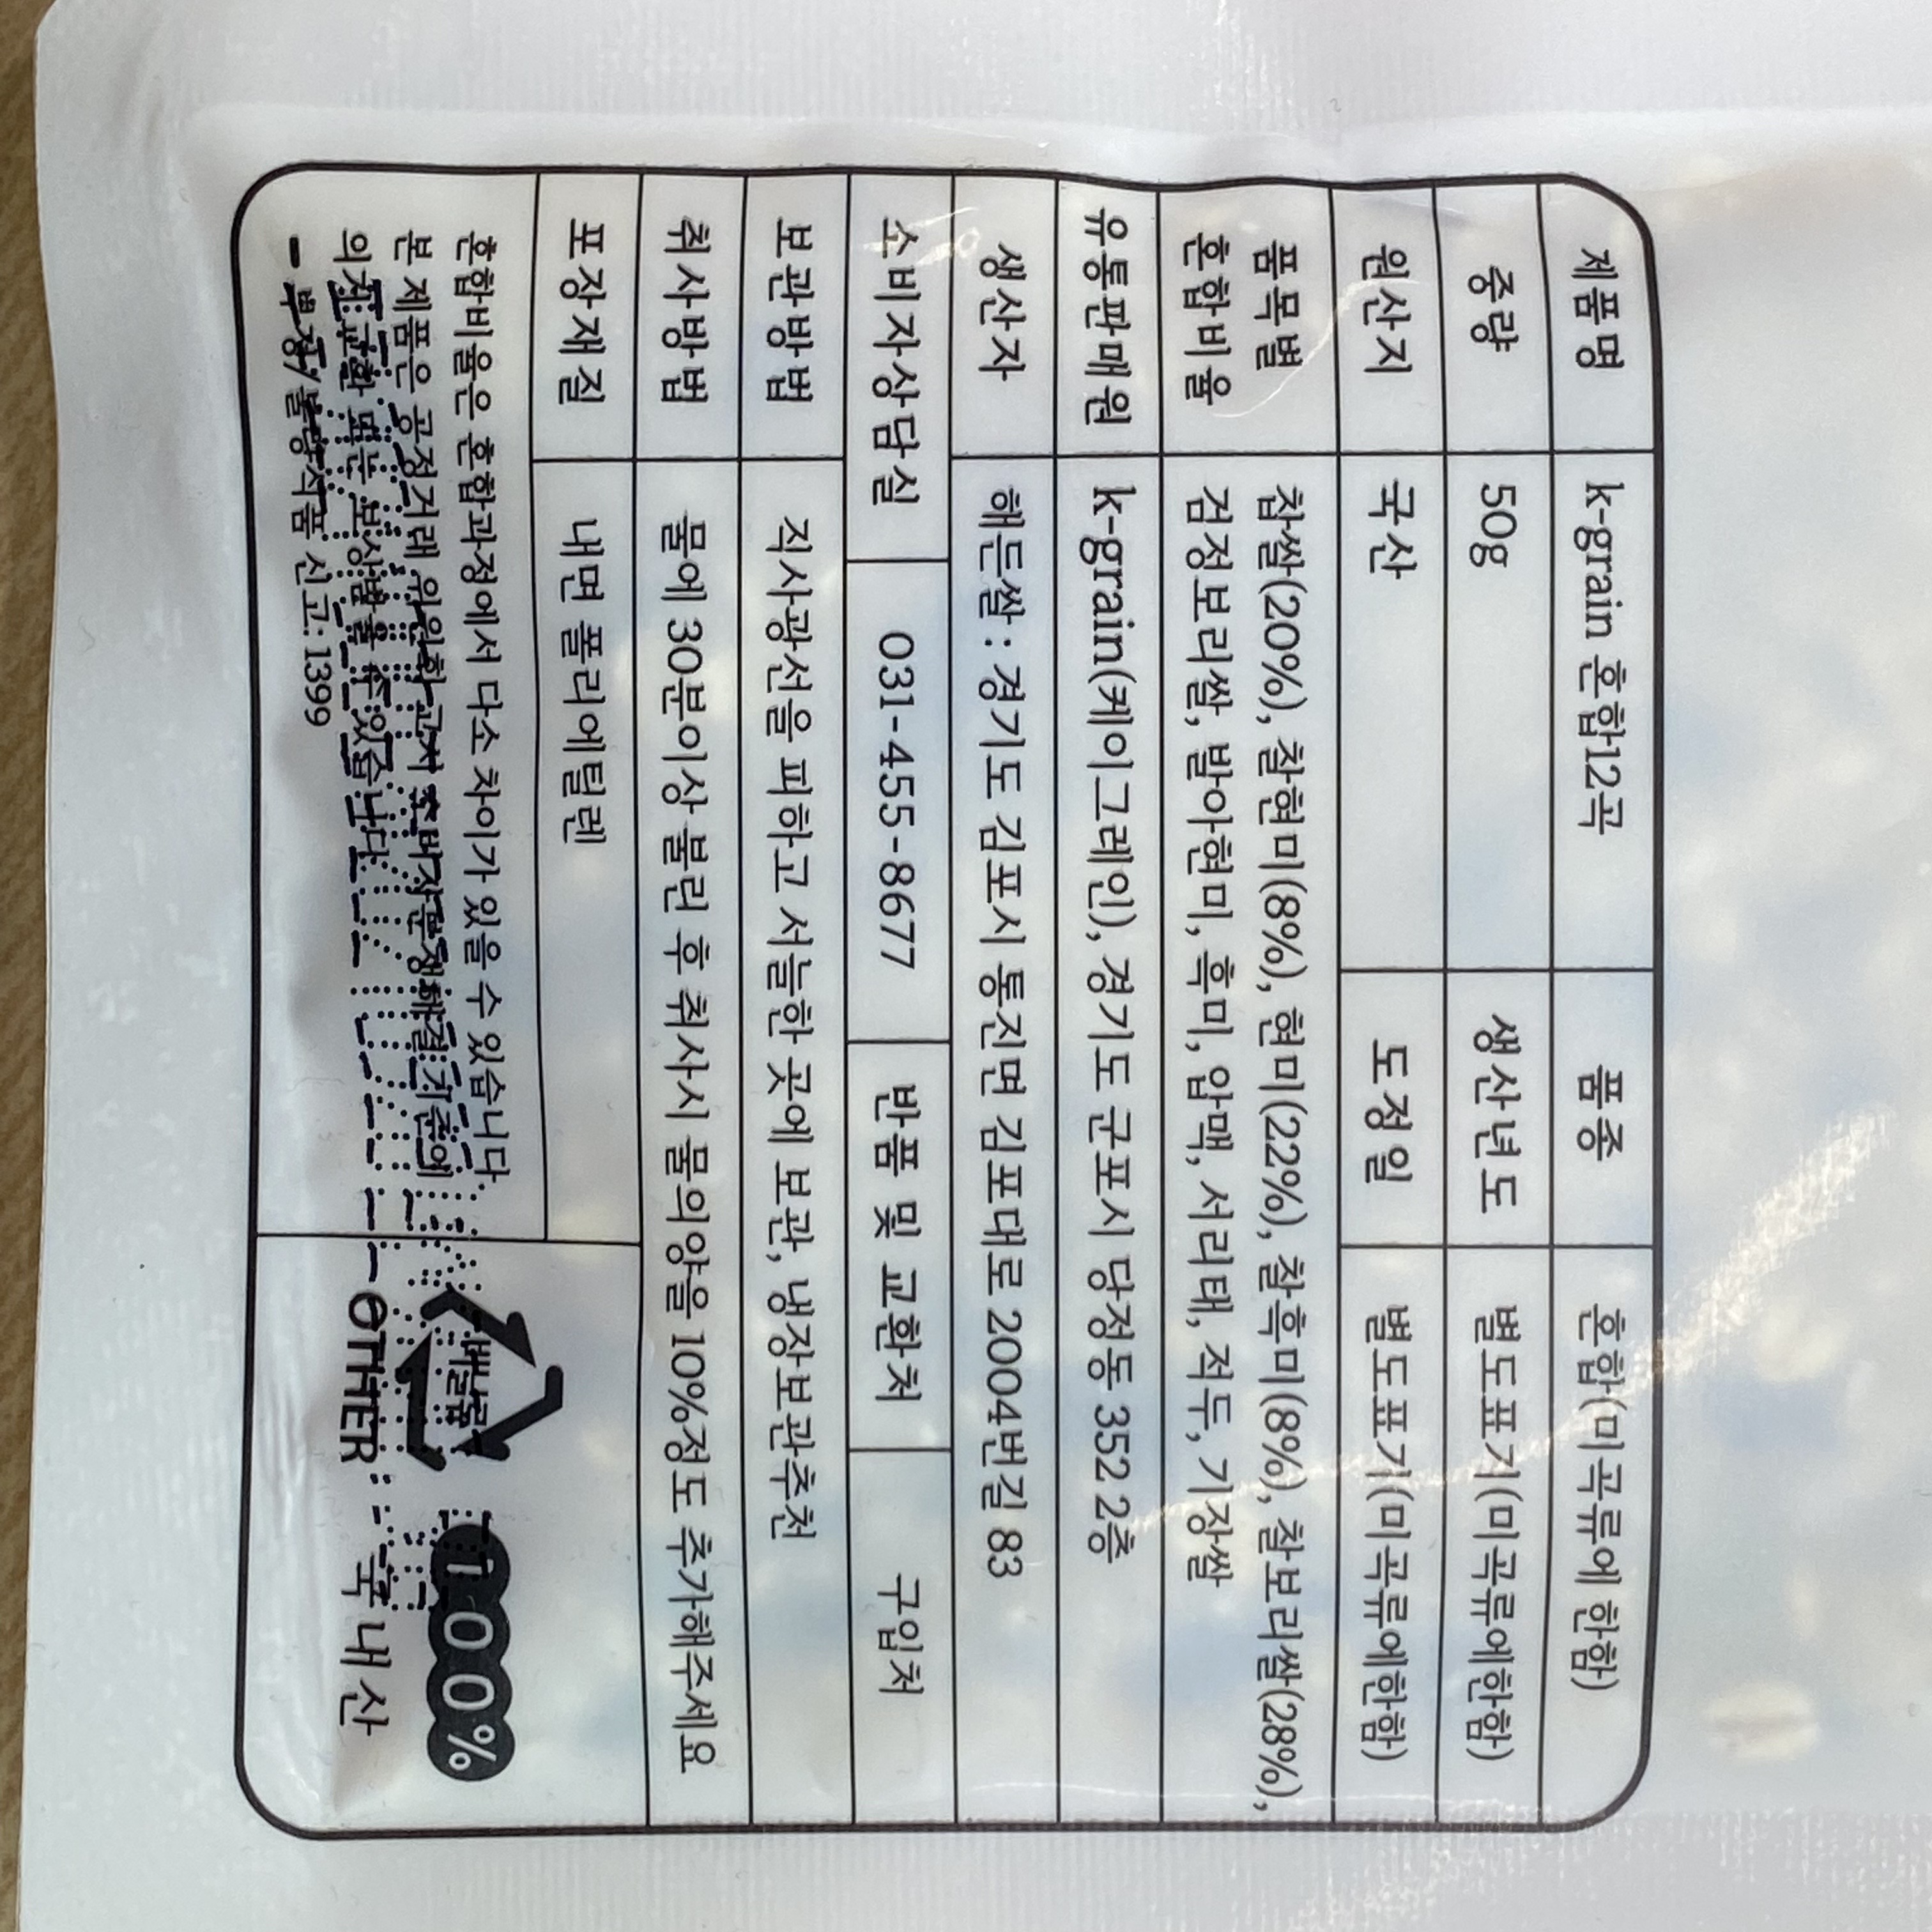 제품명 k-grain 혼합12곡 품종 혼합(미곡류에 한함)
중량 50g 생산년도 별도표기(미곡류에한함)
원산지 국산 도정일 별도표기(미곡류에한함)
품목별 혼합비율 찹쌀(20%), 찰현미(8%), 현미(22%), 찰흑미(8%), 찰보리쌀(28%),
검정보리쌀, 발아현미, 흑미, 압맥, 서리태, 적두, 기장쌀
유통판매원 k-grain(케이그레인), 경기도 군포시 당정동 352 2층
생산자 해든쌀 : 경기도 김포시 통진면 김포대로 2004번길 83
소비자상담실 031-455-8677 반품 및 교환처 구입처
보관방법 직사광선을 피하고 서늘한 곳에 보관, 냉장보관추천
취사방법 물에 30분이상 불린 후 취사시 물의양을 10%정도 추가해주세요
포장재질 내면 폴리에틸렌
혼합비율은 혼합과정에서 다소 차이가 있을 수 있습니다.
본 제품은 공정거래 위원회 고시 소비자분쟁해결 기준에
의거 교환 또는 보상받을 수 있습니다
부정/불량식품 신고:1399
비닐류
OTHER
100%
국내산